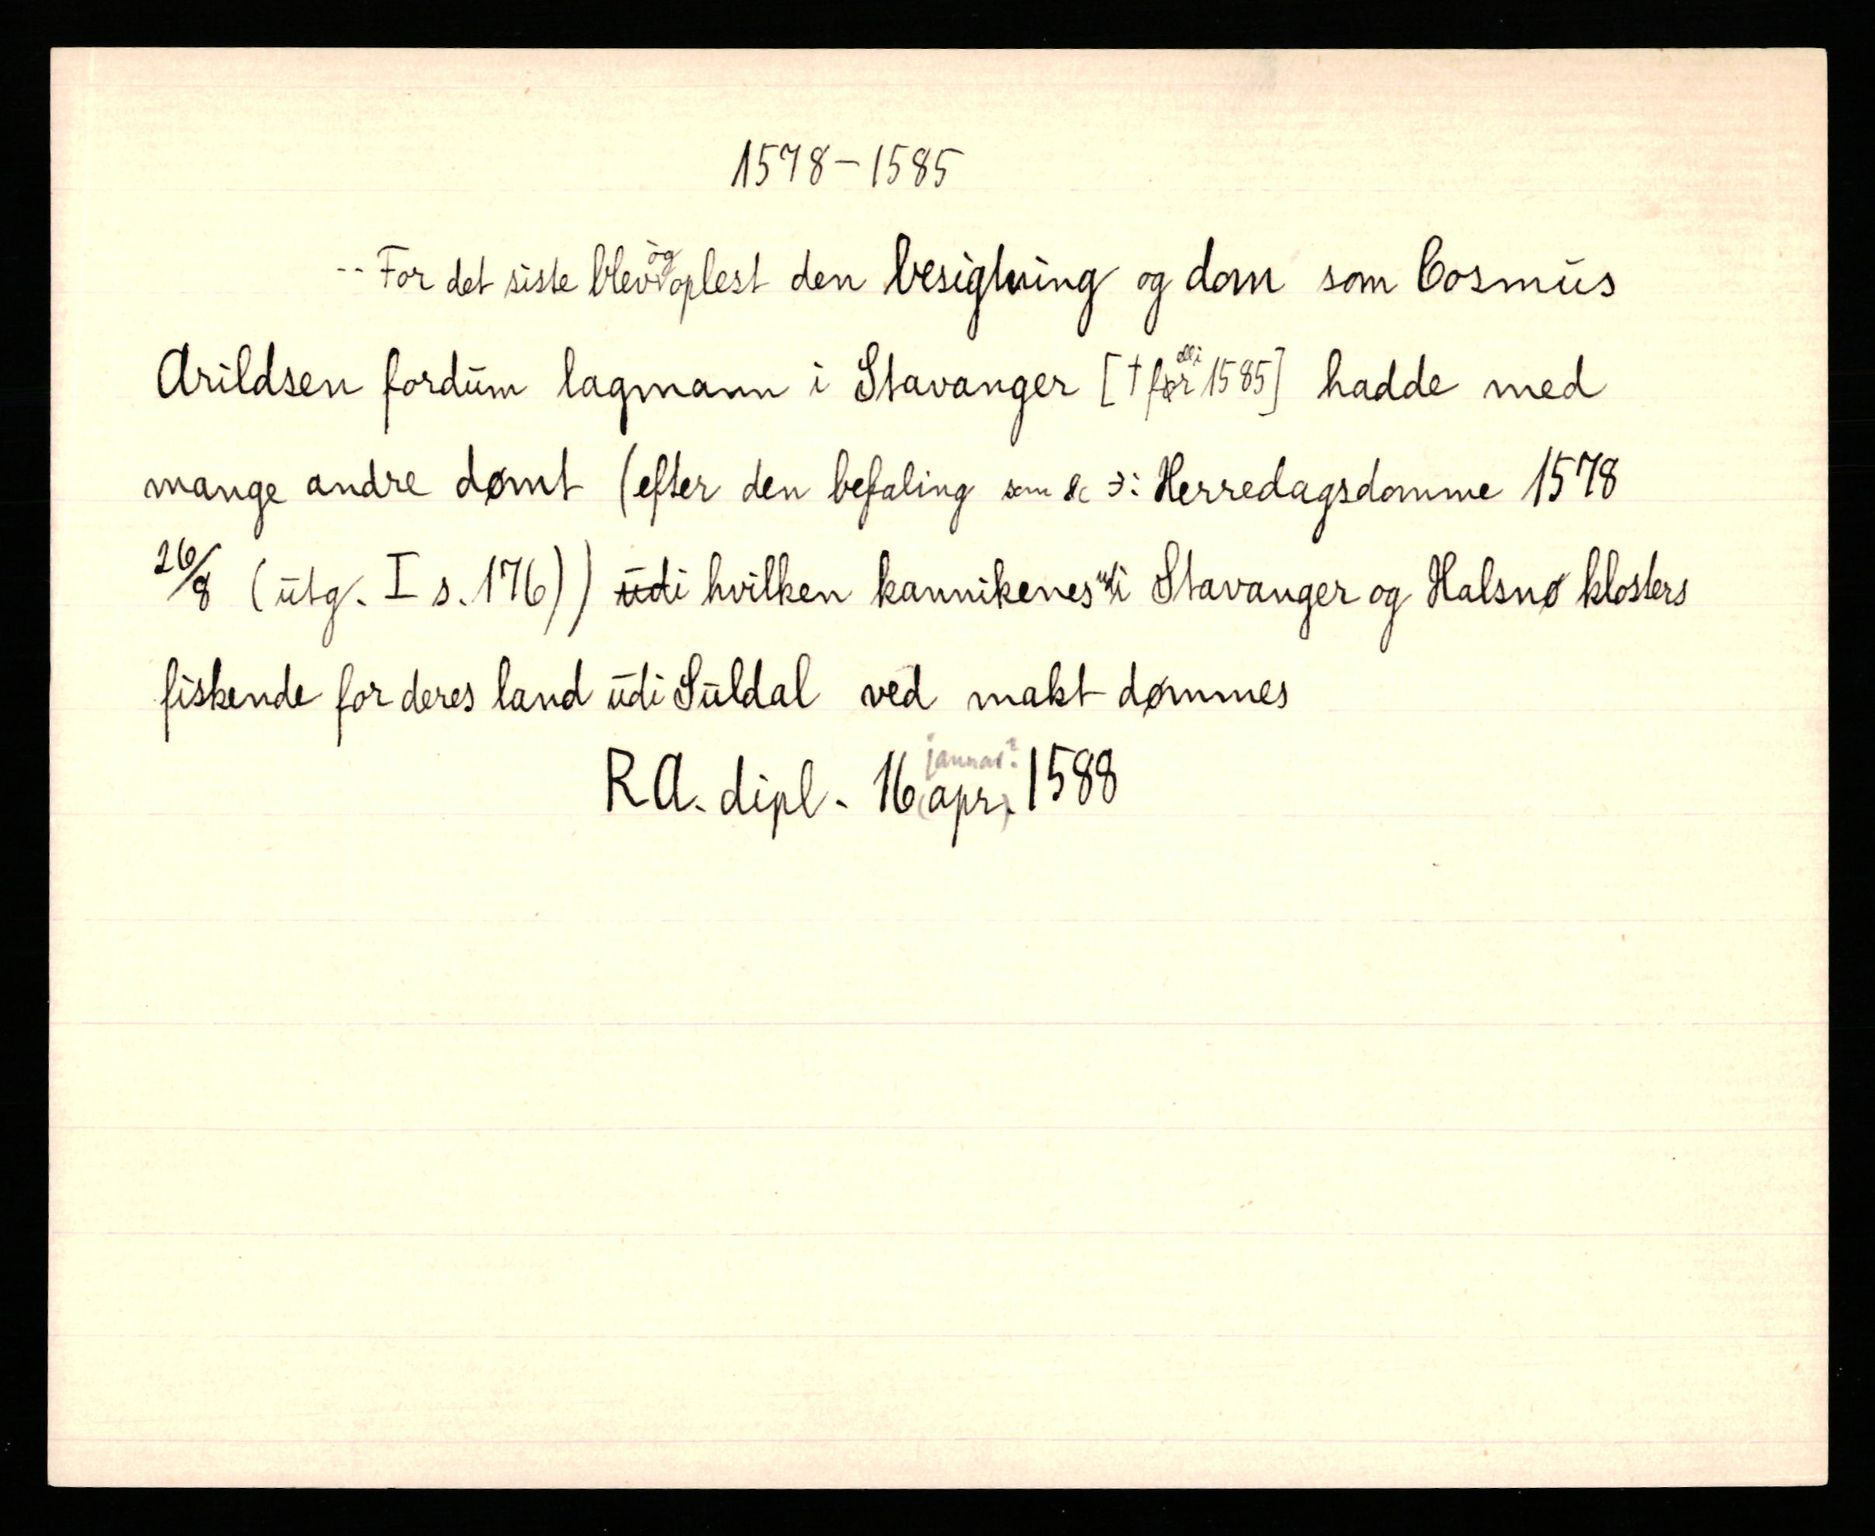 1578-1585
-- For det siste blev òg oplest den besigtning og dom som Cosmus
Arildsen fordum lagmann i Stavanger [† før ell. i 1585] hadde med
mange andre dømt (efter den befaling som &c ɔ: Herredagsdomme 1578
26/8 (utg. I s. 176)) udi hvilken kannikenes udi Stavanger og Halsnø klosters
fiskende for deres land udi Suldal ved makt dømmes
januar?
R.A. dipl. 16 (apr.) 1588